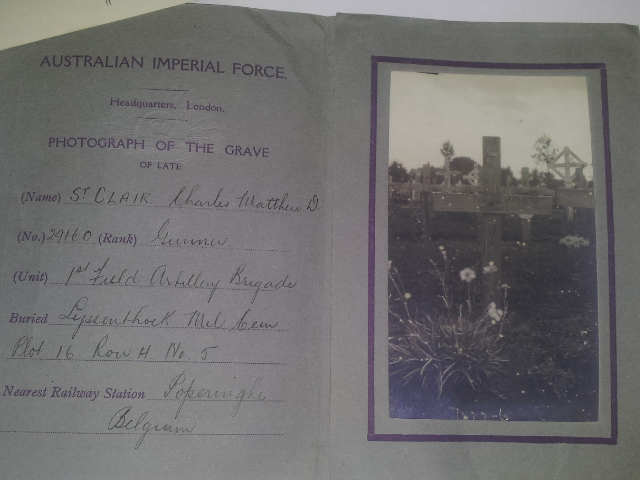 AUSTRALIAN IMPERIAL FORCE.
Headquarters, London.
PHOTOGRAPH OF THE GRAVE
OF LATE
(Name) ST CLAIR Charles Matthew D.
(No.) 29160 (Rank) Gunner.
(Unit) 1st Field Artillery Brigade
Buried Lijssenthoek Mil Cem
Plot 16 Row H No 5
Nearest Railway Station Poperinghe
Belgium